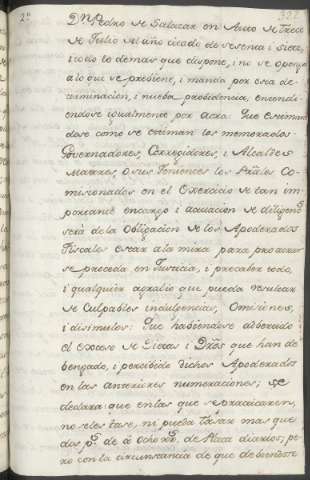 2º
Dn. Pedro de Salazar en Auto de trece
de Julio del año citado de sesenta i siete,
i todo lo demas que dispone, i no se oponga
a lo que se prebiene, i manda por esta de-
terminacion, i nueba probidencia, entendi-
endose igualmente por acra. Que estiman
dose como se estiman los memorados
Governadores, Corregidores, i Alcaldes
maiores, o sus Tenientes los Prâles Co-
micionados en el Exercicio de tan im
portante encargo i actuacion de diligens.
será de la Obligacion de los Apoderados
Fiscales estar a la mira para procurar
se proceda en Justicia, i precaber todo,
i qualquier agravio que pueda resultar
de Culpables indulgencias, Omisiones,
i disimulos: Que habiendose
el exceso de Dietas i Dros que han de-
bengado, i percibido dichos Apoderados
en las anteriores numeraciones; se
declara que en las que se practicaren,
no se les tase, ni pueda tasar mas que
dos ps. de â Ocho rrs. de Plata diarios; pe-
ro con la circunstancia de que debiendose